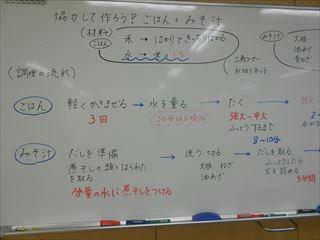 協力して作ろう?ごはんとみそ汁
(材料)
ごはん
米 → はかりできっちりはかる
水 → 米×1.5
三角コーナー
水切りネット
みそ汁
大根
油あげ
青ねぎ
(調理の流れ)
ごはん
軽くかきまぜる → 水を量る → たく
3回
30分以上吸水
強火〜中火
ふっとうするまで
8〜10分
みそ汁
だしを準備 → 洗う、切る → だしを取る
煮干しの頭とはらわた
を取る
分量の水に煮干しをつける
大根 ねぎ
油あげ
ふっとうしたら
火を弱める
5分間